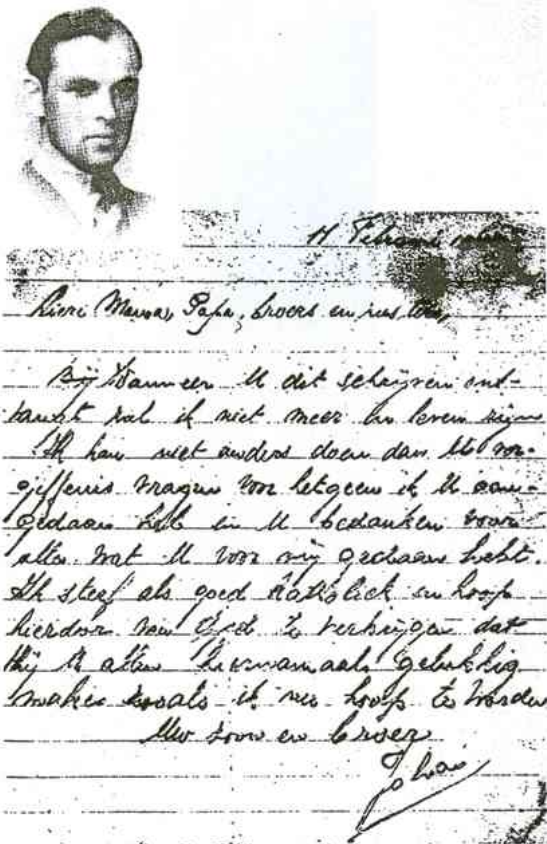 11 Februari
Lieve Mama, Papa, broers en zusters,
Bij Wanneer U dit schrijven ont-
vangt zal ik niet meer in leven zijn
Ik kan niet anders doen dan U ver-
giffenis vragen voor hetgeen ik U aan-
gedaan heb en U bedanken voor
alles wat U voor mij gedaan hebt.
Ik sterf als goed katholiek en hoop
hierdoor van God te verkrijgen dat
Hij U allen hiernamaals gelukkig
maken zoals ik nu hoop te worden
Uw zoon en broer